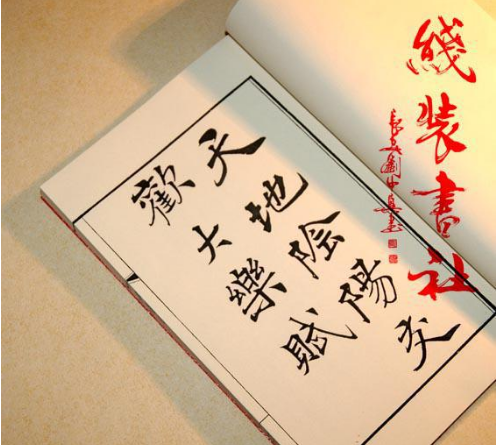 綫装書社
天地陰陽交
歡大樂賦